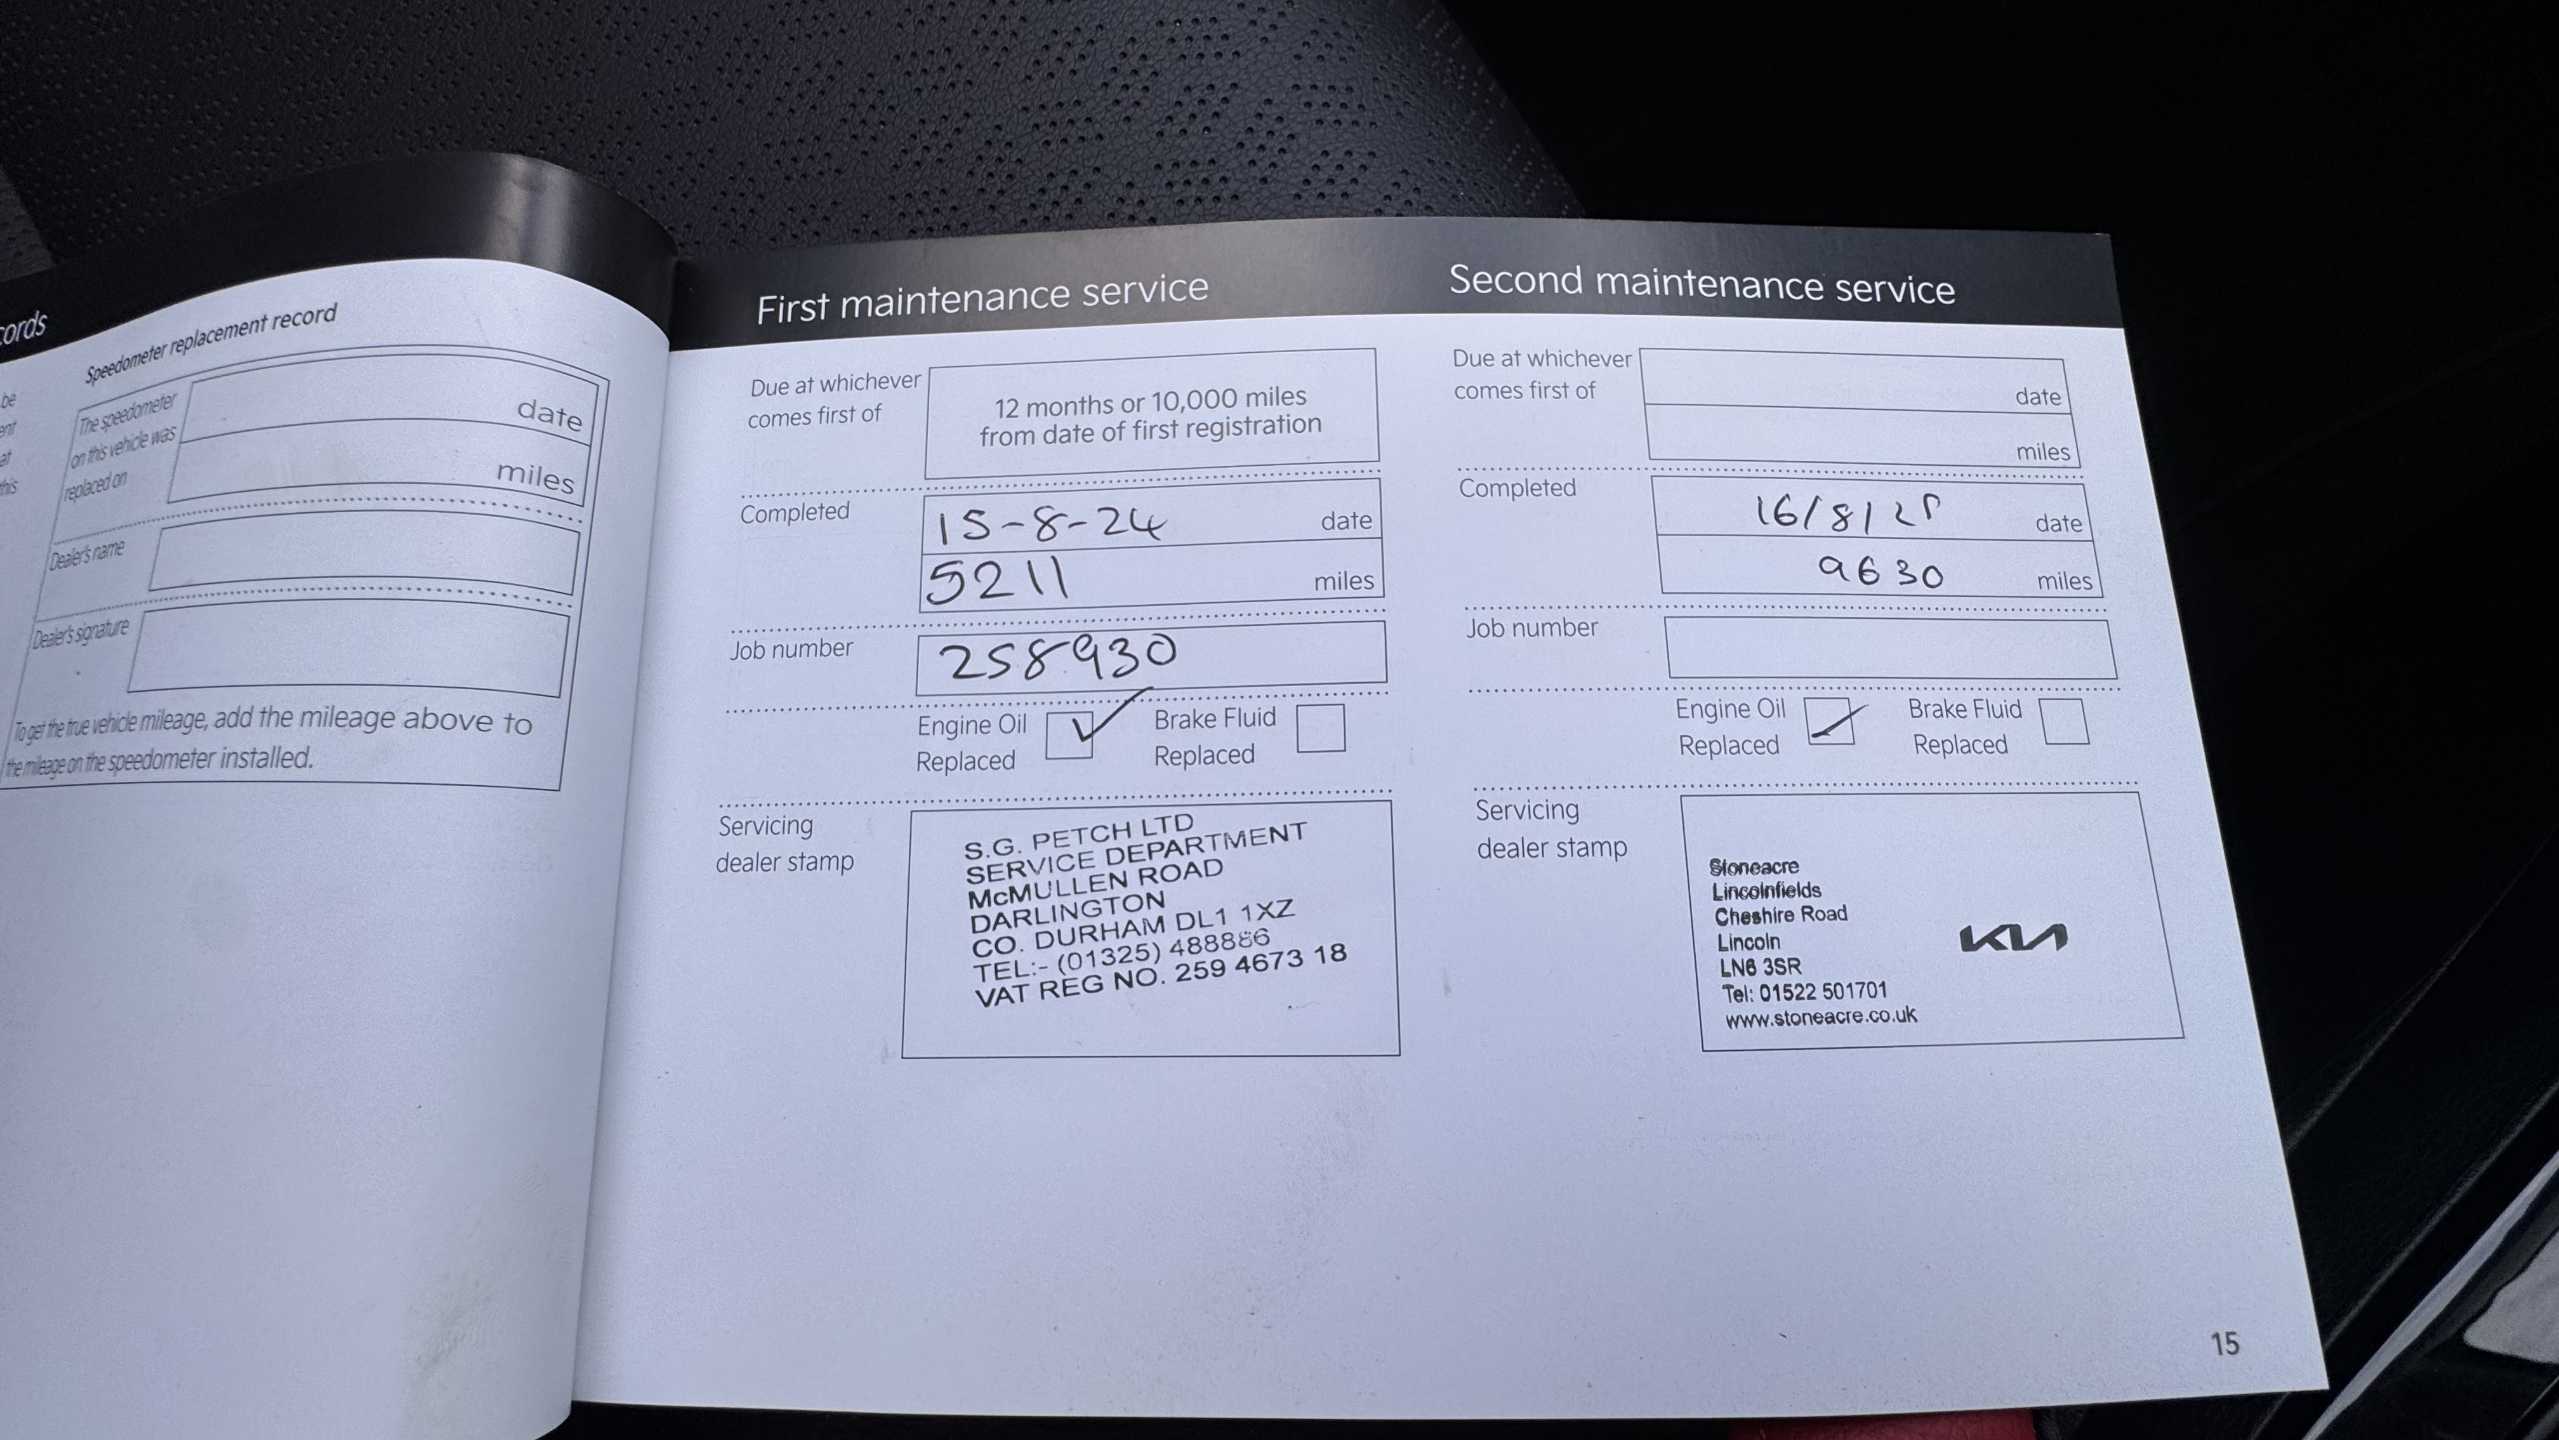 cords
be
ent
at
this
Speedometer replacement record
The speedometer
on this vehicle was
replaced on
date
miles
Dealer's name
Dealer's signature
To get the true vehicle mileage, add the mileage above to
the mileage on the speedometer installed.
First maintenance service
Due at whichever
comes first of
12 months or 10,000 miles
from date of first registration
Completed
15-8-24 date
5211 miles
Job number
258930
Engine Oil
Replaced
Brake Fluid
Replaced
Servicing
dealer stamp
S.G. PETCH LTD
SERVICE DEPARTMENT
McMULLEN ROAD
DARLINGTON
CO. DURHAM DL1 1XZ
TEL:- (01325) 488886
VAT REG NO. 259 4673 18
Second maintenance service
Due at whichever
comes first of
date
miles
Completed
16/8/25 date
9630 miles
Job number
Engine Oil
Replaced
Brake Fluid
Replaced
Servicing
dealer stamp
Stoneacre
Lincolnfields
Cheshire Road
Lincoln
LN6 3SR
Tel: 01522 501701
www.stoneacre.co.uk
KIA
15